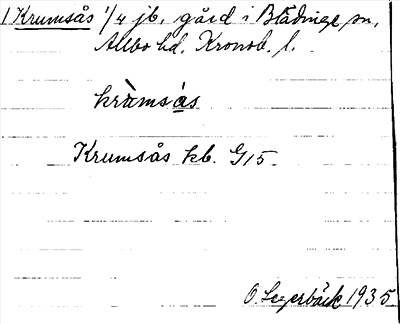 1 Krumsås 1/4 jb. gård i Blädinge sn,
Allbo hd. Kronob. l.
kràmsàs
Krumsås kb. G15
O. Segerbäck 1935